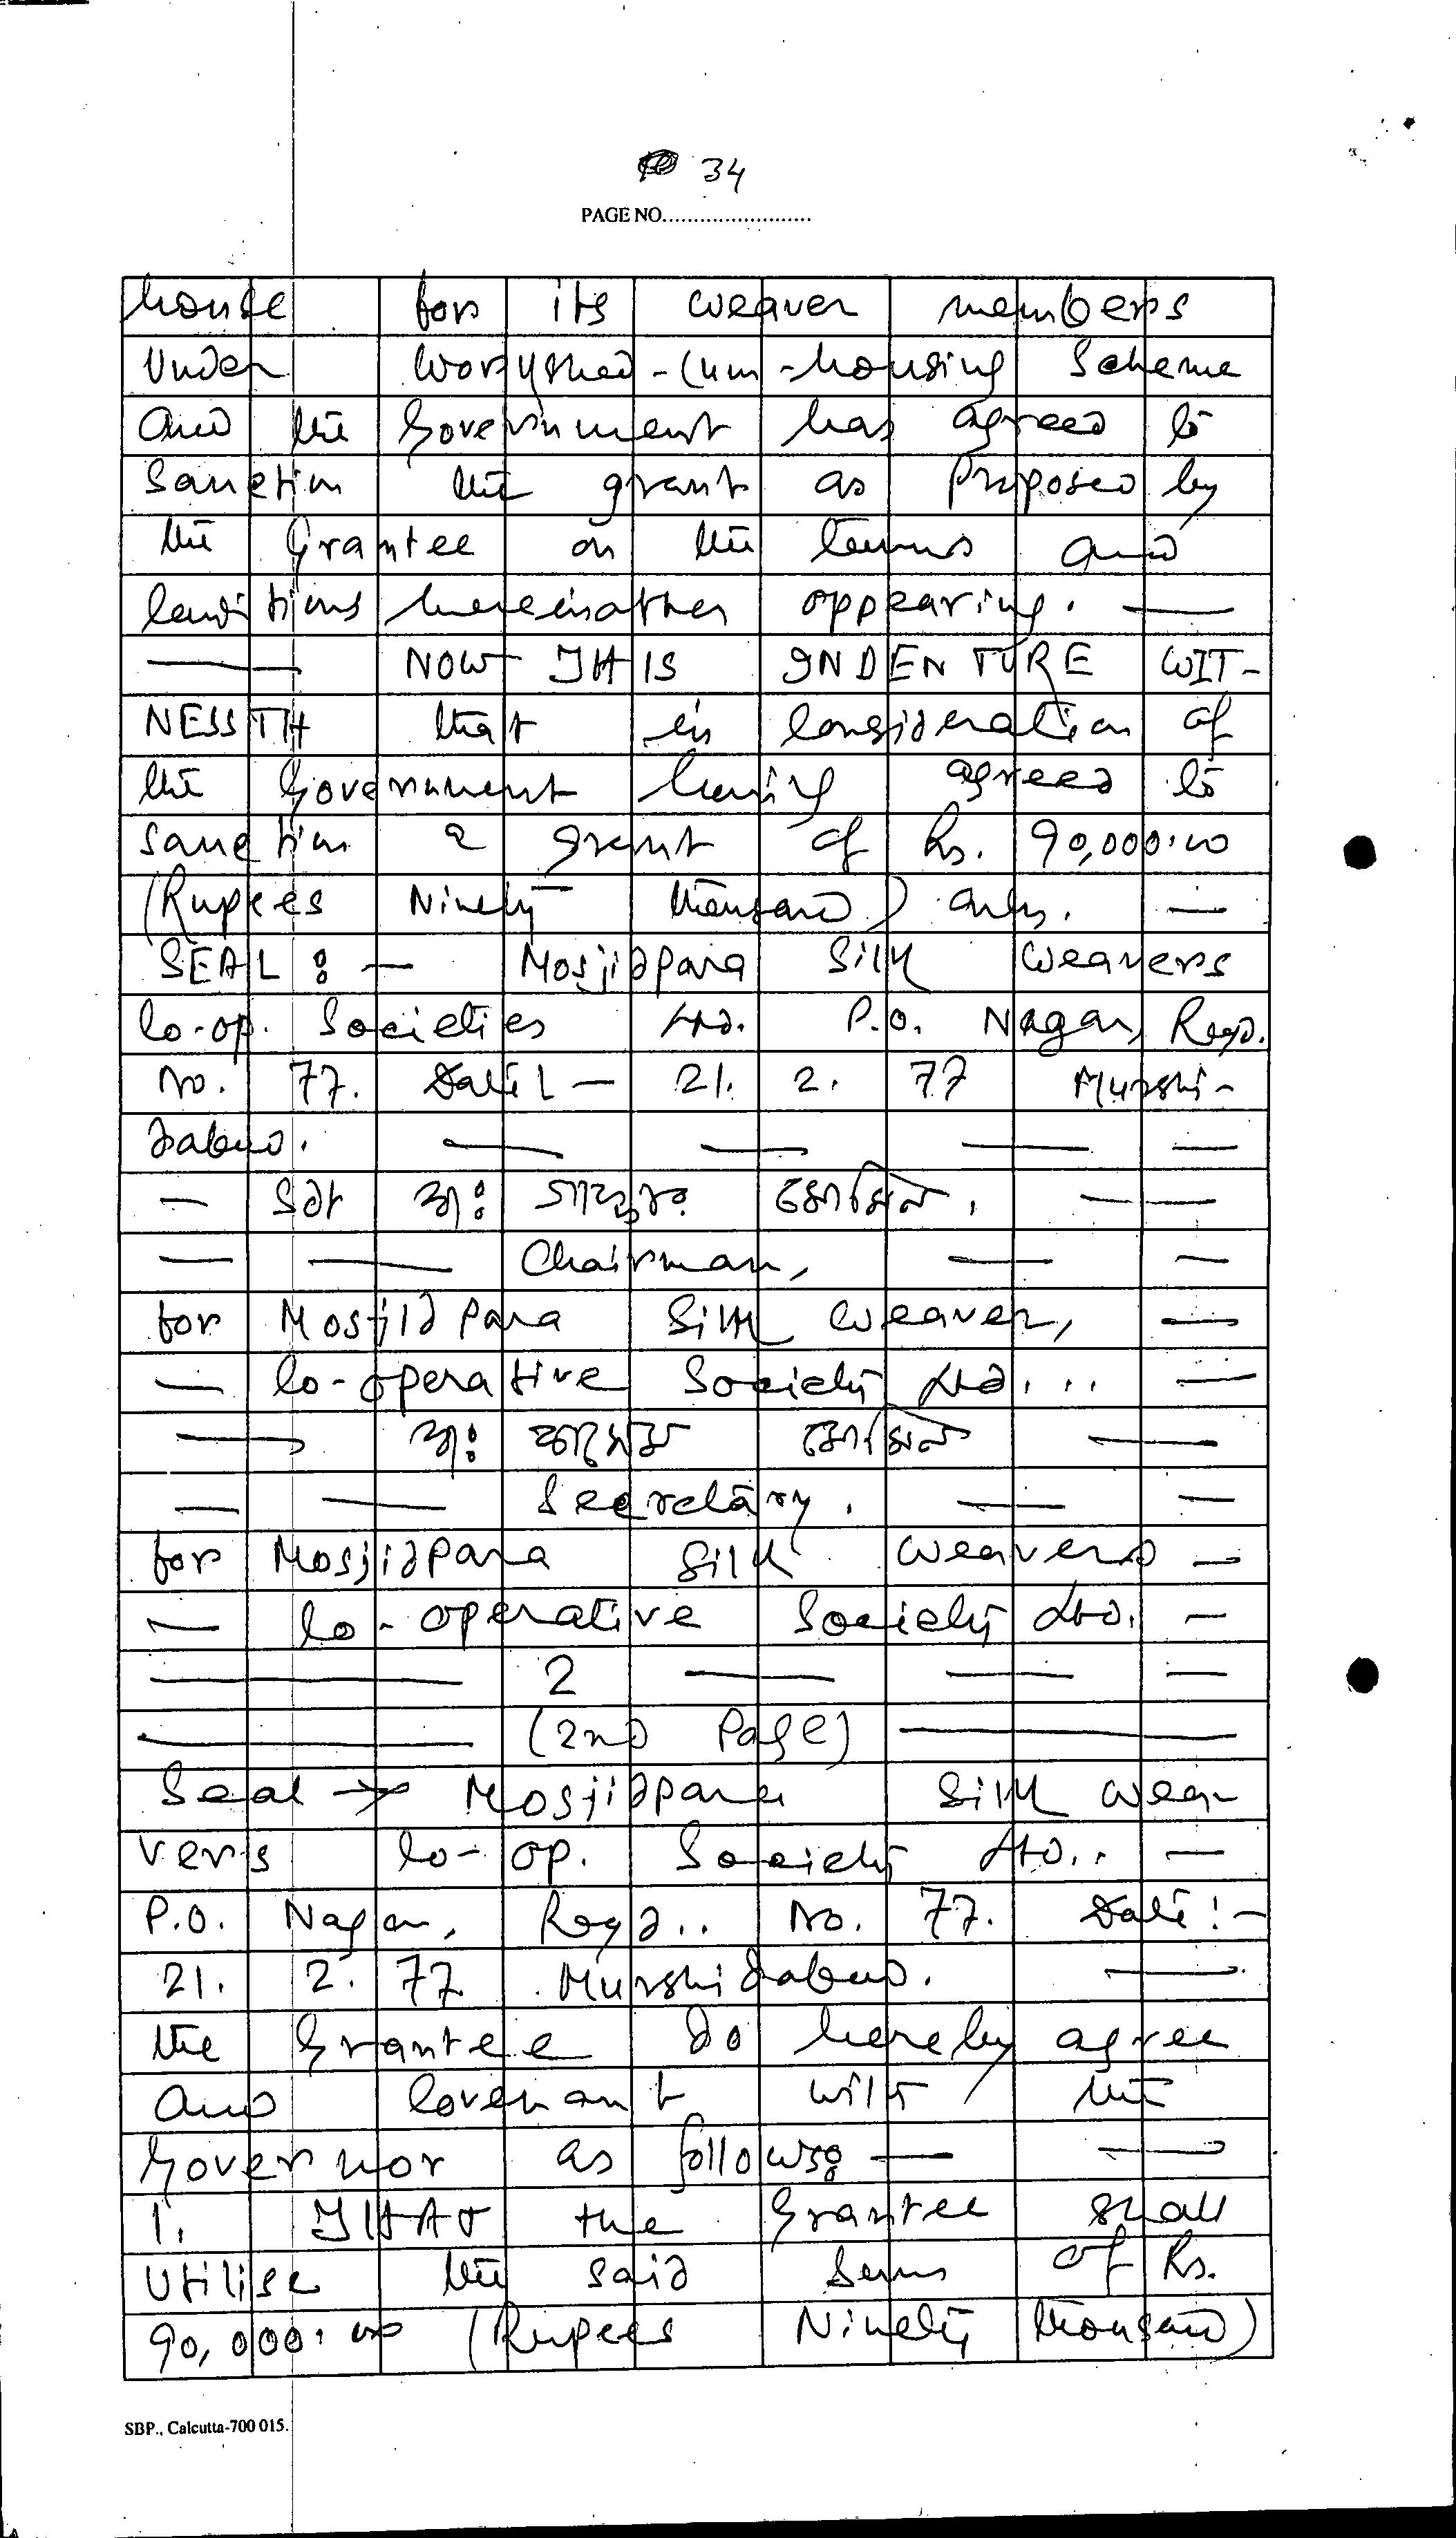 34
PAGE NO........................
house for its weaver members
Under Workshed-Cum-housing Scheme
and the Government has agreed to
Sanction the grant as proposed by
the Grantee on the terms and
Conditions hereinafter appearing. —
— NOW THIS INDENTURE WIT-
NESSTH that in Consideration of
the Government having agreed to
sanction a grant of Rs. 90,000.00
(Rupees Ninety thousand) only. —
SEAL : — Mosjidpara Silk Weavers
Co-op. Societies Ltd. P.O. Nagar, Regd.
No. 77. Date :— 21. 2. 77 Murshi-
dabad. — — — —
— Sd/ স্বাঃ মোমিন, —
— — Chairman, — —
for Mosjidpara Silk Weaver, —
— Co-operative Society Ltd... —
— স্বাঃ মোমিন —
— — Secretary. — —
for Mosjidpara Silk Weavers —
— Co-operative Society Ltd. —
— 2 — — —
— (2nd Page) —
Seal → Mosjidpara Silk Wea-
vers Co-op. Society Ltd.. —
P.O. Nagar, Regd.. No. 77. Date :-
21. 2. 77 Murshidabad. —
the Grantee do hereby agree
and Covenant with the
Governor as follows: — —
1. THAT the Grantee shall
Utilise the said Sums of Rs.
90,000.00 (Rupees Ninety thousand)
SBP., Calcutta-700 015.